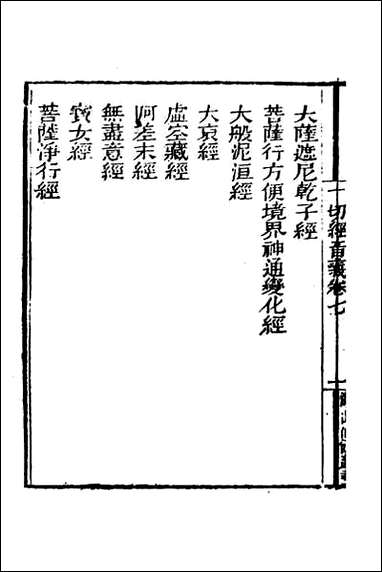 一切經音義卷七
一
大薩遮尼乾子經
菩薩行方便境界神通變化經
大般泥洹經
大哀經
虛空藏經
阿差末經
無盡意經
寳女經
菩薩淨行經